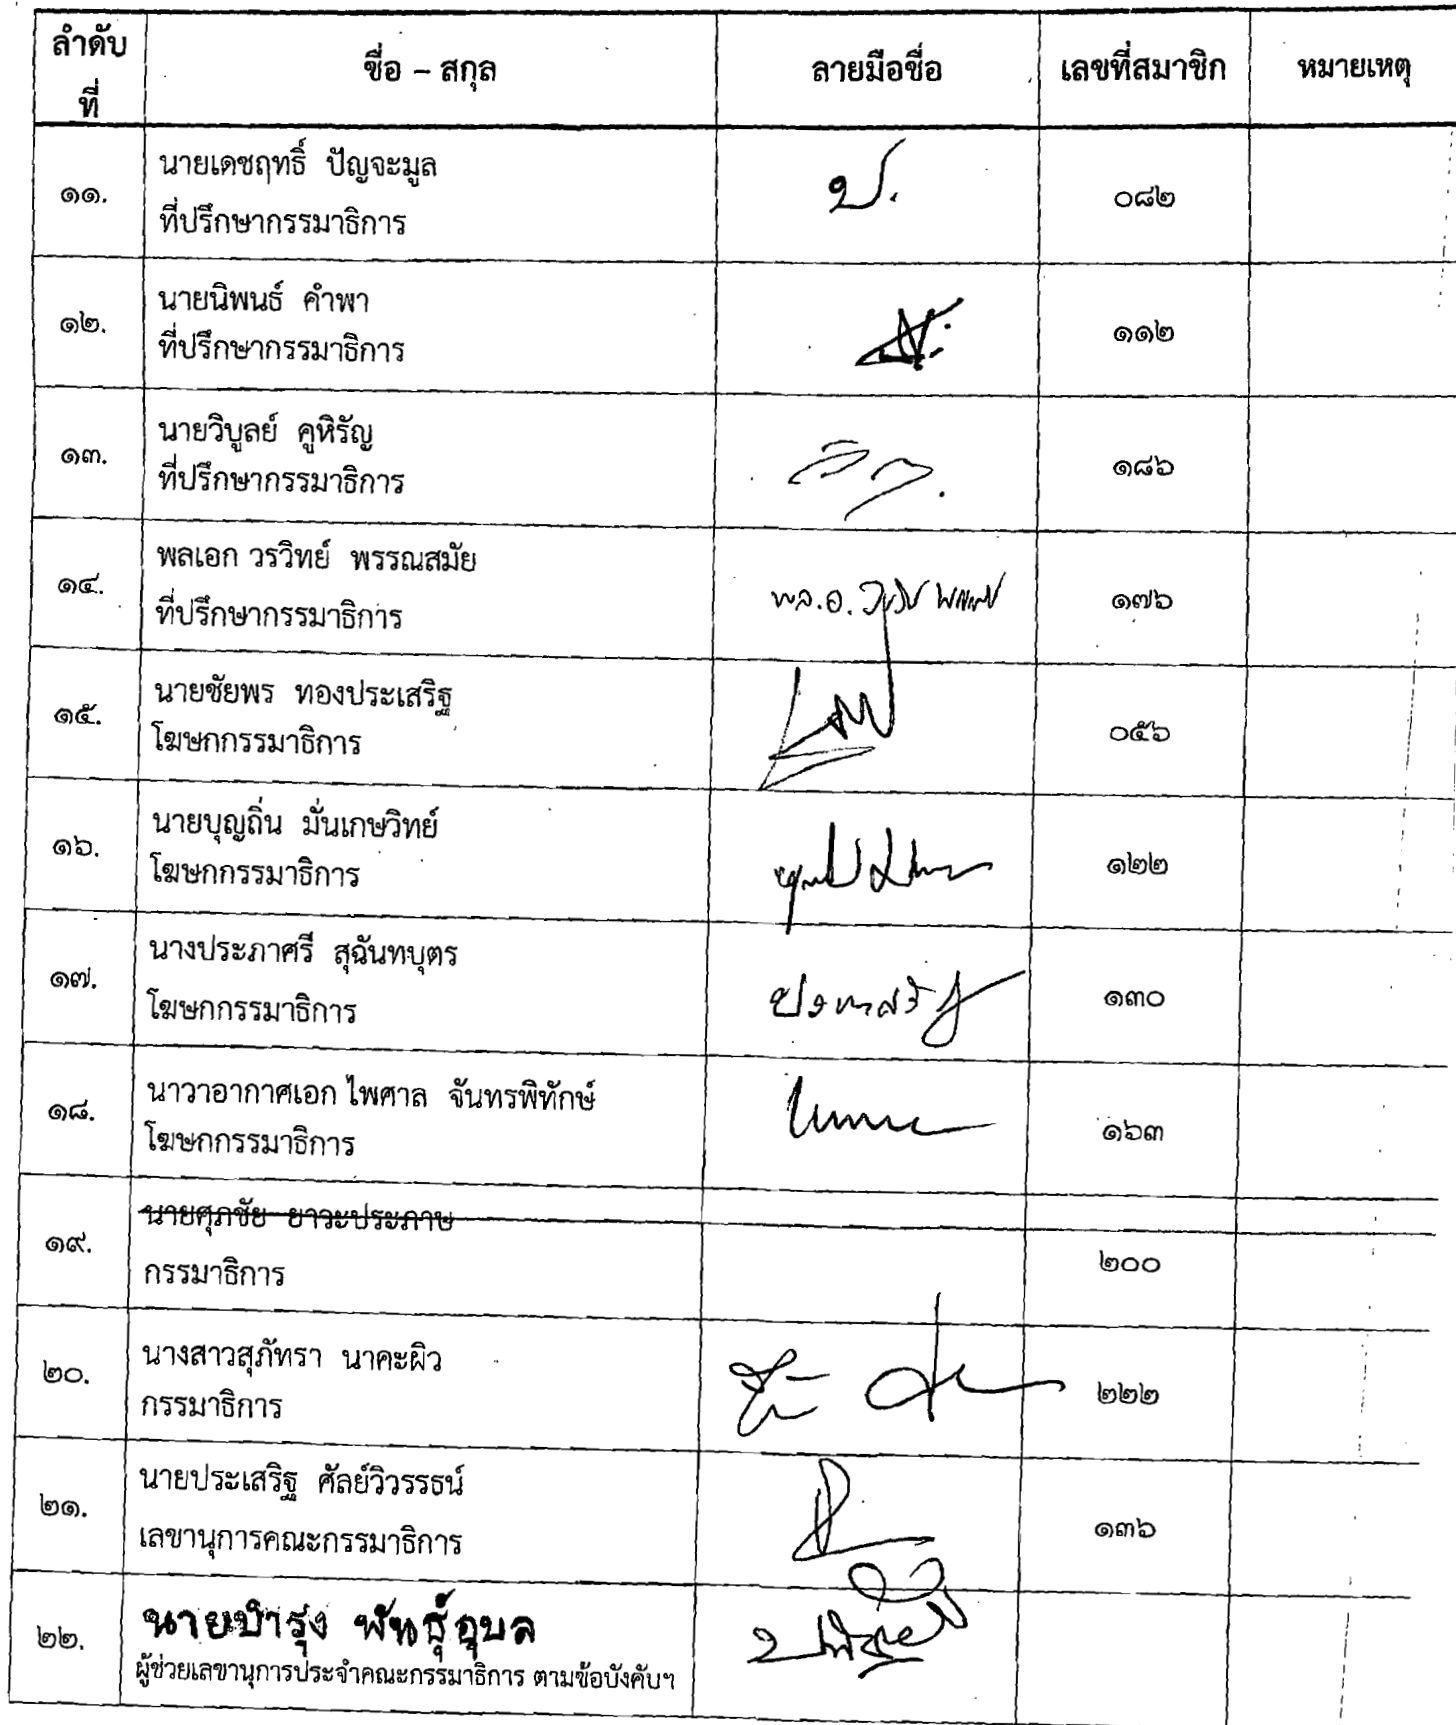 ลำดับ ชื่อ – สกุล ลายมือชื่อ เลขที่สมาชิก หมายเหตุ
ที่
๑๑. นายเดชฤทธิ์ ปัญจะมูล ๐๘๒
ที่ปรึกษากรรมาธิการ
๑๒. นายนิพนธ์ คำพา ๑๑๒
ที่ปรึกษากรรมาธิการ
๑๓. นายวิบูลย์ คูหิรัญ ๑๘๖
ที่ปรึกษากรรมาธิการ
๑๔. พลเอก วรวิทย์ พรรณสมัย พล.อ. ๑๗๖
ที่ปรึกษากรรมาธิการ
๑๕. นายชัยพร ทองประเสริฐ ๐๕๖
โฆษกกรรมาธิการ
๑๖. นายบุญถิ่น มั่นเกษวิทย์ ๑๒๒
โฆษกกรรมาธิการ
๑๗. นางประภาศรี สุฉันทบุตร ๑๓๐
โฆษกกรรมาธิการ
๑๘. นาวาอากาศเอก ไพศาล จันทรพิทักษ์ ๑๖๓
โฆษกกรรมาธิการ
๑๙. นายศุภชัย ยาวะประภาษ ๒๐๐
กรรมาธิการ
๒๐. นางสาวสุภัทรา นาคะผิว ๒๒๒
กรรมาธิการ
๒๑. นายประเสริฐ ศัลย์วิวรรธน์ ๑๓๖
เลขานุการคณะกรรมาธิการ
๒๒. นายบำรุง พันธุ์อุบล
ผู้ช่วยเลขานุการประจำคณะกรรมาธิการ ตามข้อบังคับฯ